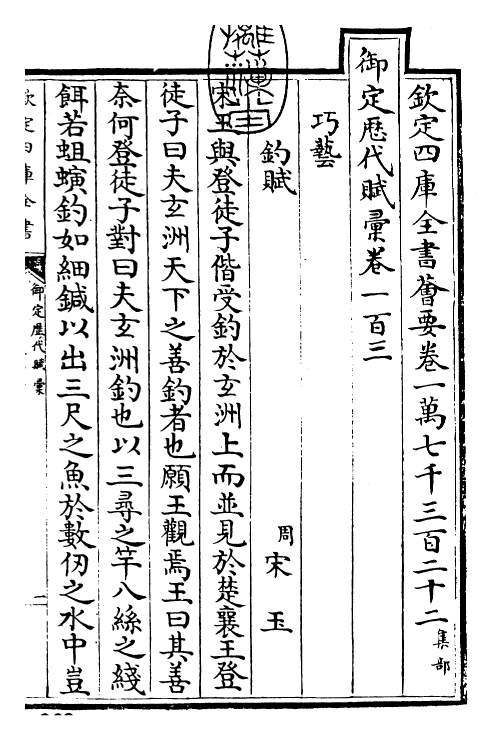 欽定四庫全書薈要卷一萬七千三百二十二集部
御定歷代賦彙卷一百三
巧藝
釣賦
周宋玉
宋玉與登徒子偕受釣於玄洲上而並見於楚襄王登
徒子曰夫玄洲天下之善釣者也願王觀焉王曰其善
奈何登徒子對曰夫玄洲釣也以三尋之竿八絲之綫
餌若蛆螾釣如細鍼以出三尺之魚於數仞之水中豈
欽定四庫全書
御定歷代賦彙